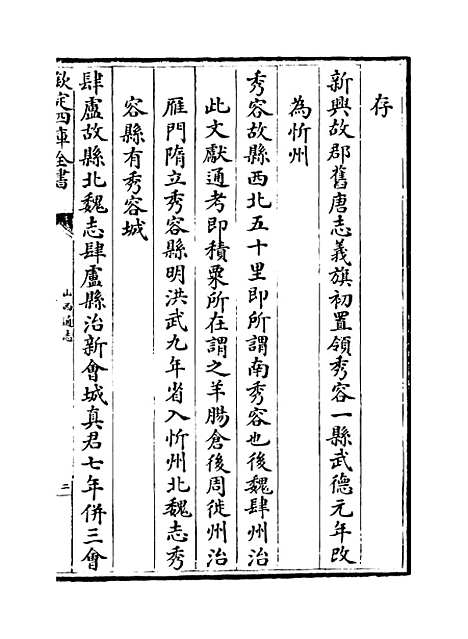 存
新興故郡舊唐志義旗初置領秀容一縣武德元年改
為忻州
秀容故縣西北五十里即所謂南秀容也後魏肆州治
此文獻通考即積粟所在謂之羊腸倉後周徙州治
雁門隋立秀容縣明洪武九年省入忻州北魏志秀
容縣有秀容城
肆盧故縣北魏志肆盧縣治新會城真君七年併三會
欽定四庫全書
山西通志
二